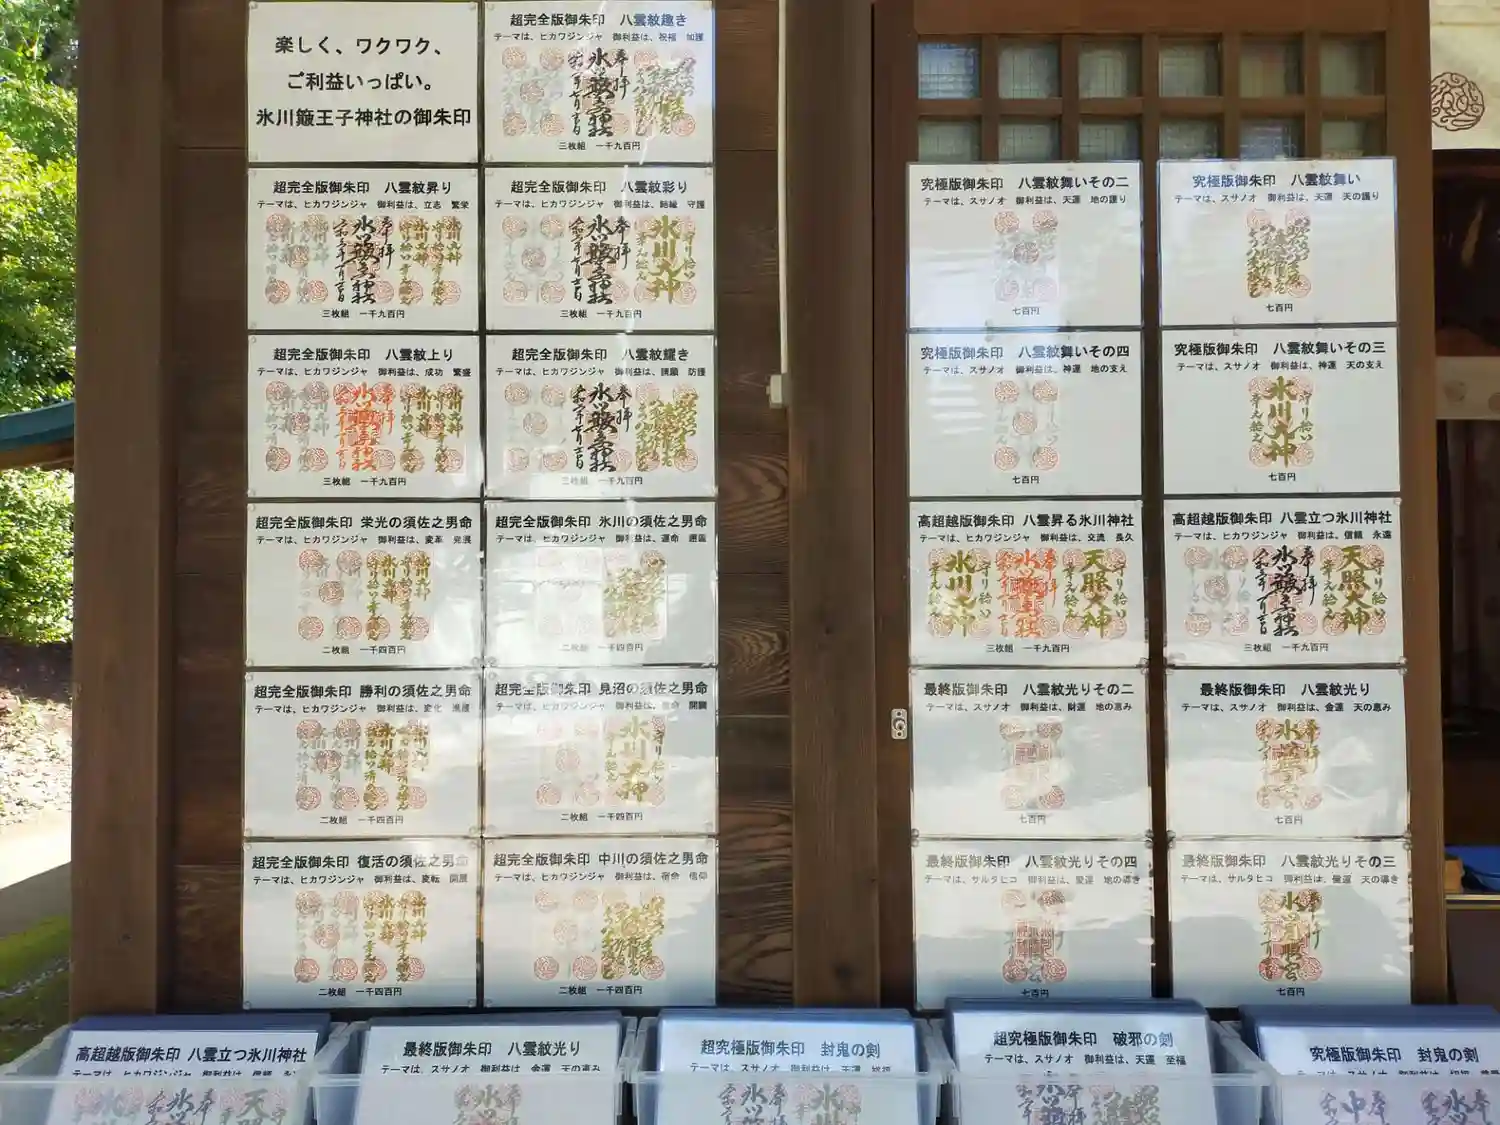 楽しく、ワクワク、
ご利益いっぱい。
氷川簸王子神社の御朱印
超完全版御朱印　八雲紋趣き
テーマは、ヒカワジンジャ　御利益は、祝福　加護
三枚組　一千九百円
超完全版御朱印　八雲紋昇り
テーマは、ヒカワジンジャ　御利益は、立志　繁栄
三枚組　一千九百円
超完全版御朱印　八雲紋彩り
テーマは、ヒカワジンジャ　御利益は、結縁　守護
三枚組　一千九百円
超完全版御朱印　八雲紋上り
テーマは、ヒカワジンジャ　御利益は、成功　繁盛
三枚組　一千九百円
超完全版御朱印　八雲紋耀き
テーマは、ヒカワジンジャ　御利益は、諸願　防護
三枚組　一千九百円
超完全版御朱印　栄光の須佐之男命
テーマは、ヒカワジンジャ　御利益は、変革　発展
二枚組　一千四百円
超完全版御朱印　氷川の須佐之男命
テーマは、ヒカワジンジャ　御利益は、運命
二枚組　一千四百円
超完全版御朱印　勝利の須佐之男命
テーマは、ヒカワジンジャ　御利益は、変化　進展
二枚組　一千四百円
超完全版御朱印　見沼の須佐之男命
テーマは、ヒカワジンジャ　御利益は、　開闢
二枚組　一千四百円
超完全版御朱印　復活の須佐之男命
テーマは、ヒカワジンジャ　御利益は、変転　開展
二枚組　一千四百円
超完全版御朱印　中川の須佐之男命
テーマは、ヒカワジンジャ　御利益は、宿命　信仰
二枚組　一千四百円
究極版御朱印　八雲紋舞いその二
テーマは、スサノオ　御利益は、天運　地の護り
七百円
究極版御朱印　八雲紋舞い
テーマは、スサノオ　御利益は、天運　天の護り
七百円
究極版御朱印　八雲紋舞いその四
テーマは、スサノオ　御利益は、神運　地の支え
七百円
究極版御朱印　八雲紋舞いその三
テーマは、スサノオ　御利益は、神運　天の支え
七百円
高超越版御朱印　八雲昇る氷川神社
テーマは、ヒカワジンジャ　御利益は、交流　長久
三枚組　一千九百円
高超越版御朱印　八雲立つ氷川神社
テーマは、ヒカワジンジャ　御利益は、信頼　永遠
三枚組　一千九百円
最終版御朱印　八雲紋光りその二
テーマは、スサノオ　御利益は、財運　地の恵み
七百円
最終版御朱印　八雲紋光り
テーマは、スサノオ　御利益は、金運　天の恵み
七百円
最終版御朱印　八雲紋光りその四
テーマは、サルタヒコ　御利益は、愛運　地の導き
七百円
最終版御朱印　八雲紋光りその三
テーマは、サルタヒコ　御利益は、健運　天の導き
七百円
高超越版御朱印　八雲立つ氷川神社
テーマは、ヒカワジンジャ　御利益は、信頼
最終版御朱印　八雲紋光り
テーマは、スサノオ　御利益は、金運　天の恵み
超究極版御朱印　封鬼の剣
テーマは、スサノオ　御利益は、天運
超究極版御朱印　破邪の剣
テーマは、スサノオ　御利益は、天運　至福
究極版御朱印　封鬼の剣
テーマは、スサノオ　御利益は、